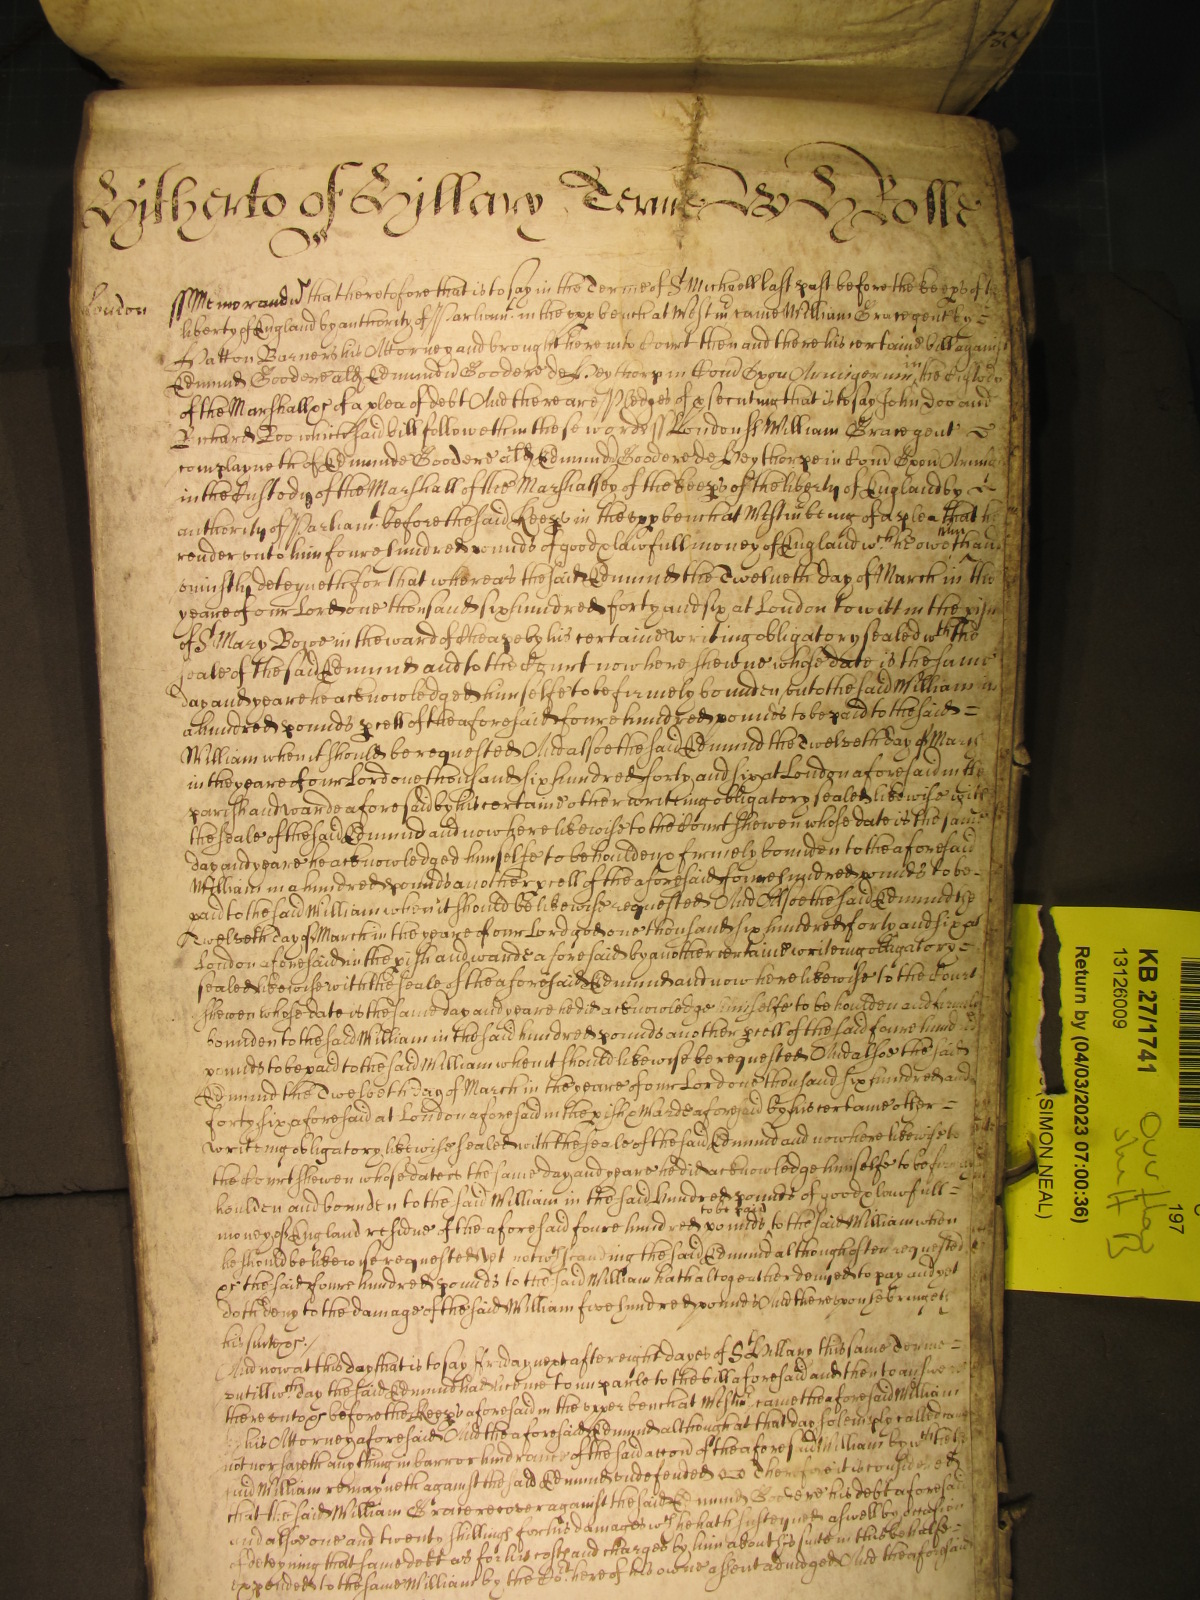 Hitherto of Hillary Terme W H Rolle
London
ss Memorand that heretofore that is to say in the Terme of St Michaell last past before the keeps of the
liberty of England by authority of Parliamt in the upp bench at Westm came William Grace gent by =
Hatton Barners his Attorney and brought here into Court then and there his certaine bill against
Edmund Goodere als Edmund Goodere de Heythorp in Com Oxon Armiger in the Custody
of the Marshall &c of a plea of debt And there are Pledges of psecuting that is to say John Doo and
Richard Roo which said bill followeth in these words ss London ss William Grace gent
complayneth of Edmunde Goodere als Edmund Goodere de Heythorpe in Com Oxon Armiger
in the Custody of the Marshall of the Marshalsey of the keeps of the liberty of England by
authority of Parliamt before the said Keeps in the upp bench at Westm being of a plea that he
render unto him foure hundred pounds of good & lawfull money of England wch he oweth him and
uniustly deteyneth for that whereas the said Edmund the Twelveth day of March in the
yeare of our Lord one thousand six hundred forty and six at London to witt in the pish
of St Mary Bowe in the ward of Cheape by his certaine writing obligatory sealed wth the
seale of the said Edmund and to the Court now here shewne whose date is the same
day and yeare he acknowledged himselfe to be firmely bounden unto the said William in
a hundred pounds pcell of the aforesaid foure hundred pounds to be paid to the said =
William when it should be requested And alsoe the said Edmund the Twelveth day of March
in the yeare of our Lord one thousand six hundred forty and six at London aforesaid in the
parish and warde aforesaid by his certaine other writing obligatory sealed likewise with
the seale of the said Edmund and now here likewise to the Court shewen whose date is the same
day and yeare he acknowledged himselfe to be houlden & firmely bounden to the aforesaid
William in a hundred pounds another pcell of the aforesaid foure hundred pounds to be =
paid to the said William when it should be likewise requested And Alsoe the said Edmund the
Twelveth day of March in the yeare of our Lord god one thousand six hundred forty and six at
London aforesaid in the pish and warde aforesaid by another certaine writeing obligatory =
sealed likewise with the seale of the aforesaid Edmund and now here likewise to the Court
shewen whose date is the same day and yeare he did acknowledge himselfe to be houlden and firmely
bounden to the said William in the said hundred pounds another pcell of the said foure hundred
pounds to be paid to the said William when it should likewise be requested And alsoe the said
Edmund the Twelveth day of March in the yeare of our Lord one thousand six hundred and
forty six aforesaid at London aforesaid in the pish & Warde aforesaid by his certaine other =
writeing obligatory likewise sealed with the seale of the said Edmund and now here likewise to
the Court shewen whose date is the same day and yeare he did acknowledge himselfe to be firmely
houlden and bounden to the said William in the said hundred pounds of good & lawfull =
money of England residue of the aforesaid foure hundred pounds to be paid to the said William when
he should be likewise requested Yet notwthstanding the said Edmund although often requested
&c the said foure hundred pounds to the said William hath altogether denyed to pay and yet
doth deny to the damage of the said William five hundred pounds And thereupon he bringeth
his suite &c /
And now at this day that is to say Friday next after eight dayes of St Hillary this same Terme =
untill wch day the said Edmund had licence to imparle to the bill aforesaid and then to answere
thereunto &c before the keeps aforesaid in the upper bench at Westm came the aforesaid William
by his Attorney aforesaid And the aforesaid Edmund although at that day solemply called came
not nor sayeth any thing in barr or hindrance of the said accon of the aforesaid William by wch the
said William remayneth against the said Edmund undefended Therefore it is considered
that the said William Grace recover against the said Edmund Goodere his debt aforesaid
and alsoe one and twenty shillings for his damages wch he hath susteyned aswell by occasion
of deteyning that same debt as for his costs and charges by him about his suite in this behalfe =
expended to the same William by the Cort here of his owne assent adiudged And the aforesaid
KB 27/1741
13126009
Return by (04/03/2023 07:00:36)
SIMON NEAL)
197